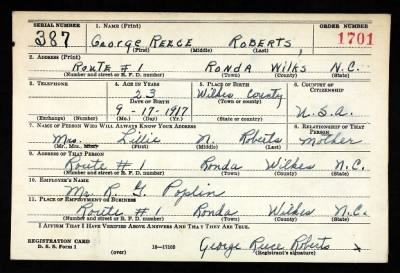 SERIAL NUMBER 1. NAME (Print) ORDER NUMBER
387 GEORGE REECE ROBERTS 1701
(First) (Middle) (Last)
2. ADDRESS (Print)
ROUTE #1 RONDA WILKS N.C.
(Number and street or R. F. D. number) (Town) (County) (State)
3. TELEPHONE 4. AGE IN YEARS 5. PLACE OF BIRTH 6. COUNTRY OF CITIZENSHIP
23 Wilkes County
DATE OF BIRTH (Town or county)
9-17-1917 N.C. U.S.A.
(Exchange) (Number) (Mo.) (Day) (Yr.) (State or country)
7. NAME OF PERSON WHO WILL ALWAYS KNOW YOUR ADDRESS 8. RELATIONSHIP OF THAT PERSON
Mrs. Lillie N. Roberts Mother
(Mr., Mrs., Miss) (First) (Middle) (Last)
9. ADDRESS OF THAT PERSON
Route #1 Ronda Wilkes N.C.
(Number and street or R. F. D. number) (Town) (County) (State)
10. EMPLOYER'S NAME
Mr. R. G. Poplin
11. PLACE OF EMPLOYMENT OR BUSINESS
Route #1 Ronda Wilkes N.C.
(Number and street or R. F. D. number) (Town) (County) (State)
I AFFIRM THAT I HAVE VERIFIED ABOVE ANSWERS AND THAT THEY ARE TRUE.
REGISTRATION CARD
D. S. S. Form 1 (over) 16—17105 George Reece Roberts x
(Registrant's signature)